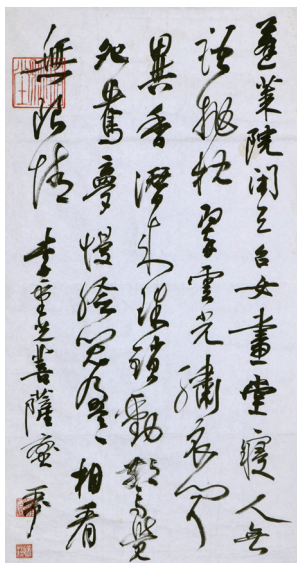 蓬萊院閉天台女畫堂寢人無
語拋枕翠雲光繡衣聞
異香潛來珠鎖動驚覺
鴛鴦夢慢臉笑盈盈相看
無限情 李重光菩薩蠻